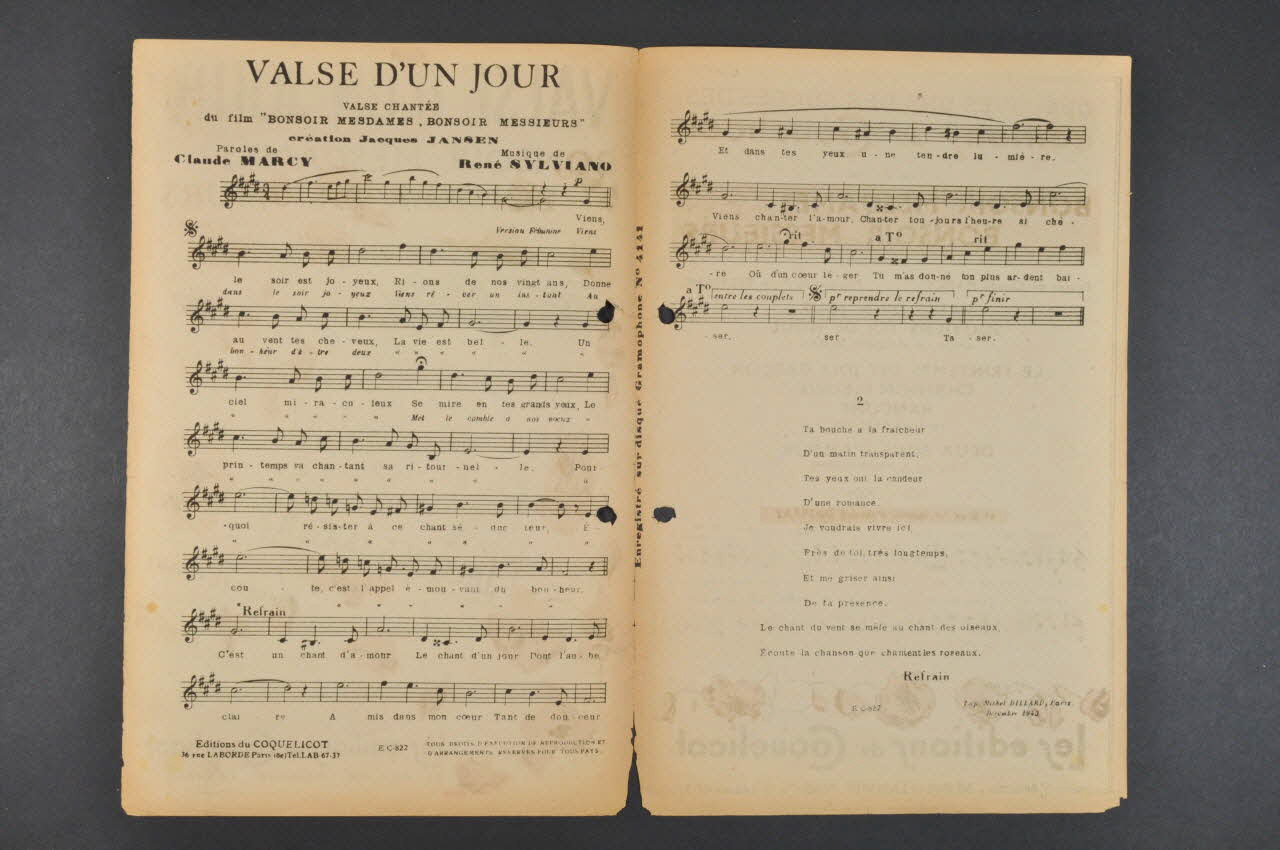 VALSE D'UN JOUR
VALSE CHANTÉE
du film "BONSOIR MESDAMES, BONSOIR MESSIEURS"
création Jacques JANSEN
Paroles de
Claude MARCY
Musique de
René SYLVIANO
Viens,
Version Féminine Viens
le soir est jo-yeux, Ri-ons de nos vingt ans, Donne
dans le soir jo-yeux Viens rê-ver un ins-tant Au
au vent tes che-veux, La vie est bel-le. Un
bon-heur d'ê-tre deux " " " " "
ciel mi-ra-cu-leux Se mire en tes grands yeux, Le
" " " " Met le comble à nos vœux "
prin-temps va chan-tant sa ri-tour-nel-le. Pour-
-quoi ré-sis-ter à ce chant sé-duc-teur, É-
cou-te, c'est l'appel é-mou-vant du bon-heur.
Refrain
C'est un chant d'a-mour Le chant d'un jour Dont l'au-be
clai-re A mis dans mon cœur Tant de dou-ceur
Editions du COQUELICOT
36 rue LABORDE Paris (8e) Tel. LAB 67-37
E.C-822
TOUS DROITS D'EXECUTION DE REPRODUCTION ET
D'ARRANGEMENTS RESERVÉS POUR TOUS PAYS.
Enregistré sur disque Gramophone No 4141
Et dans tes yeux u-ne ten-dre lu-miè-re.
Viens chan-ter l'a-mour, Chan-ter tou-jours l'heu-re si chè-
rit a To rit
-re Où d'un cœur lé-ger Tu m'as don-né ton plus ar-dent bai-
a To entre les couplets pr reprendre le refrain pr finir
-ser. ser. Ta -ser.
2
Ta bouche a la fraîcheur
D'un matin transparent,
Tes yeux ont la candeur
D'une romance.
Je voudrais vivre ici
Près de toi, très longtemps,
Et me griser ainsi
De ta présence.
Le chant du vent se mêle au chant des oiseaux,
Écoute la chanson que chantent les roseaux.
Refrain
E.C-827
Imp. Michel DILLARD, Paris.
Décembre 1943